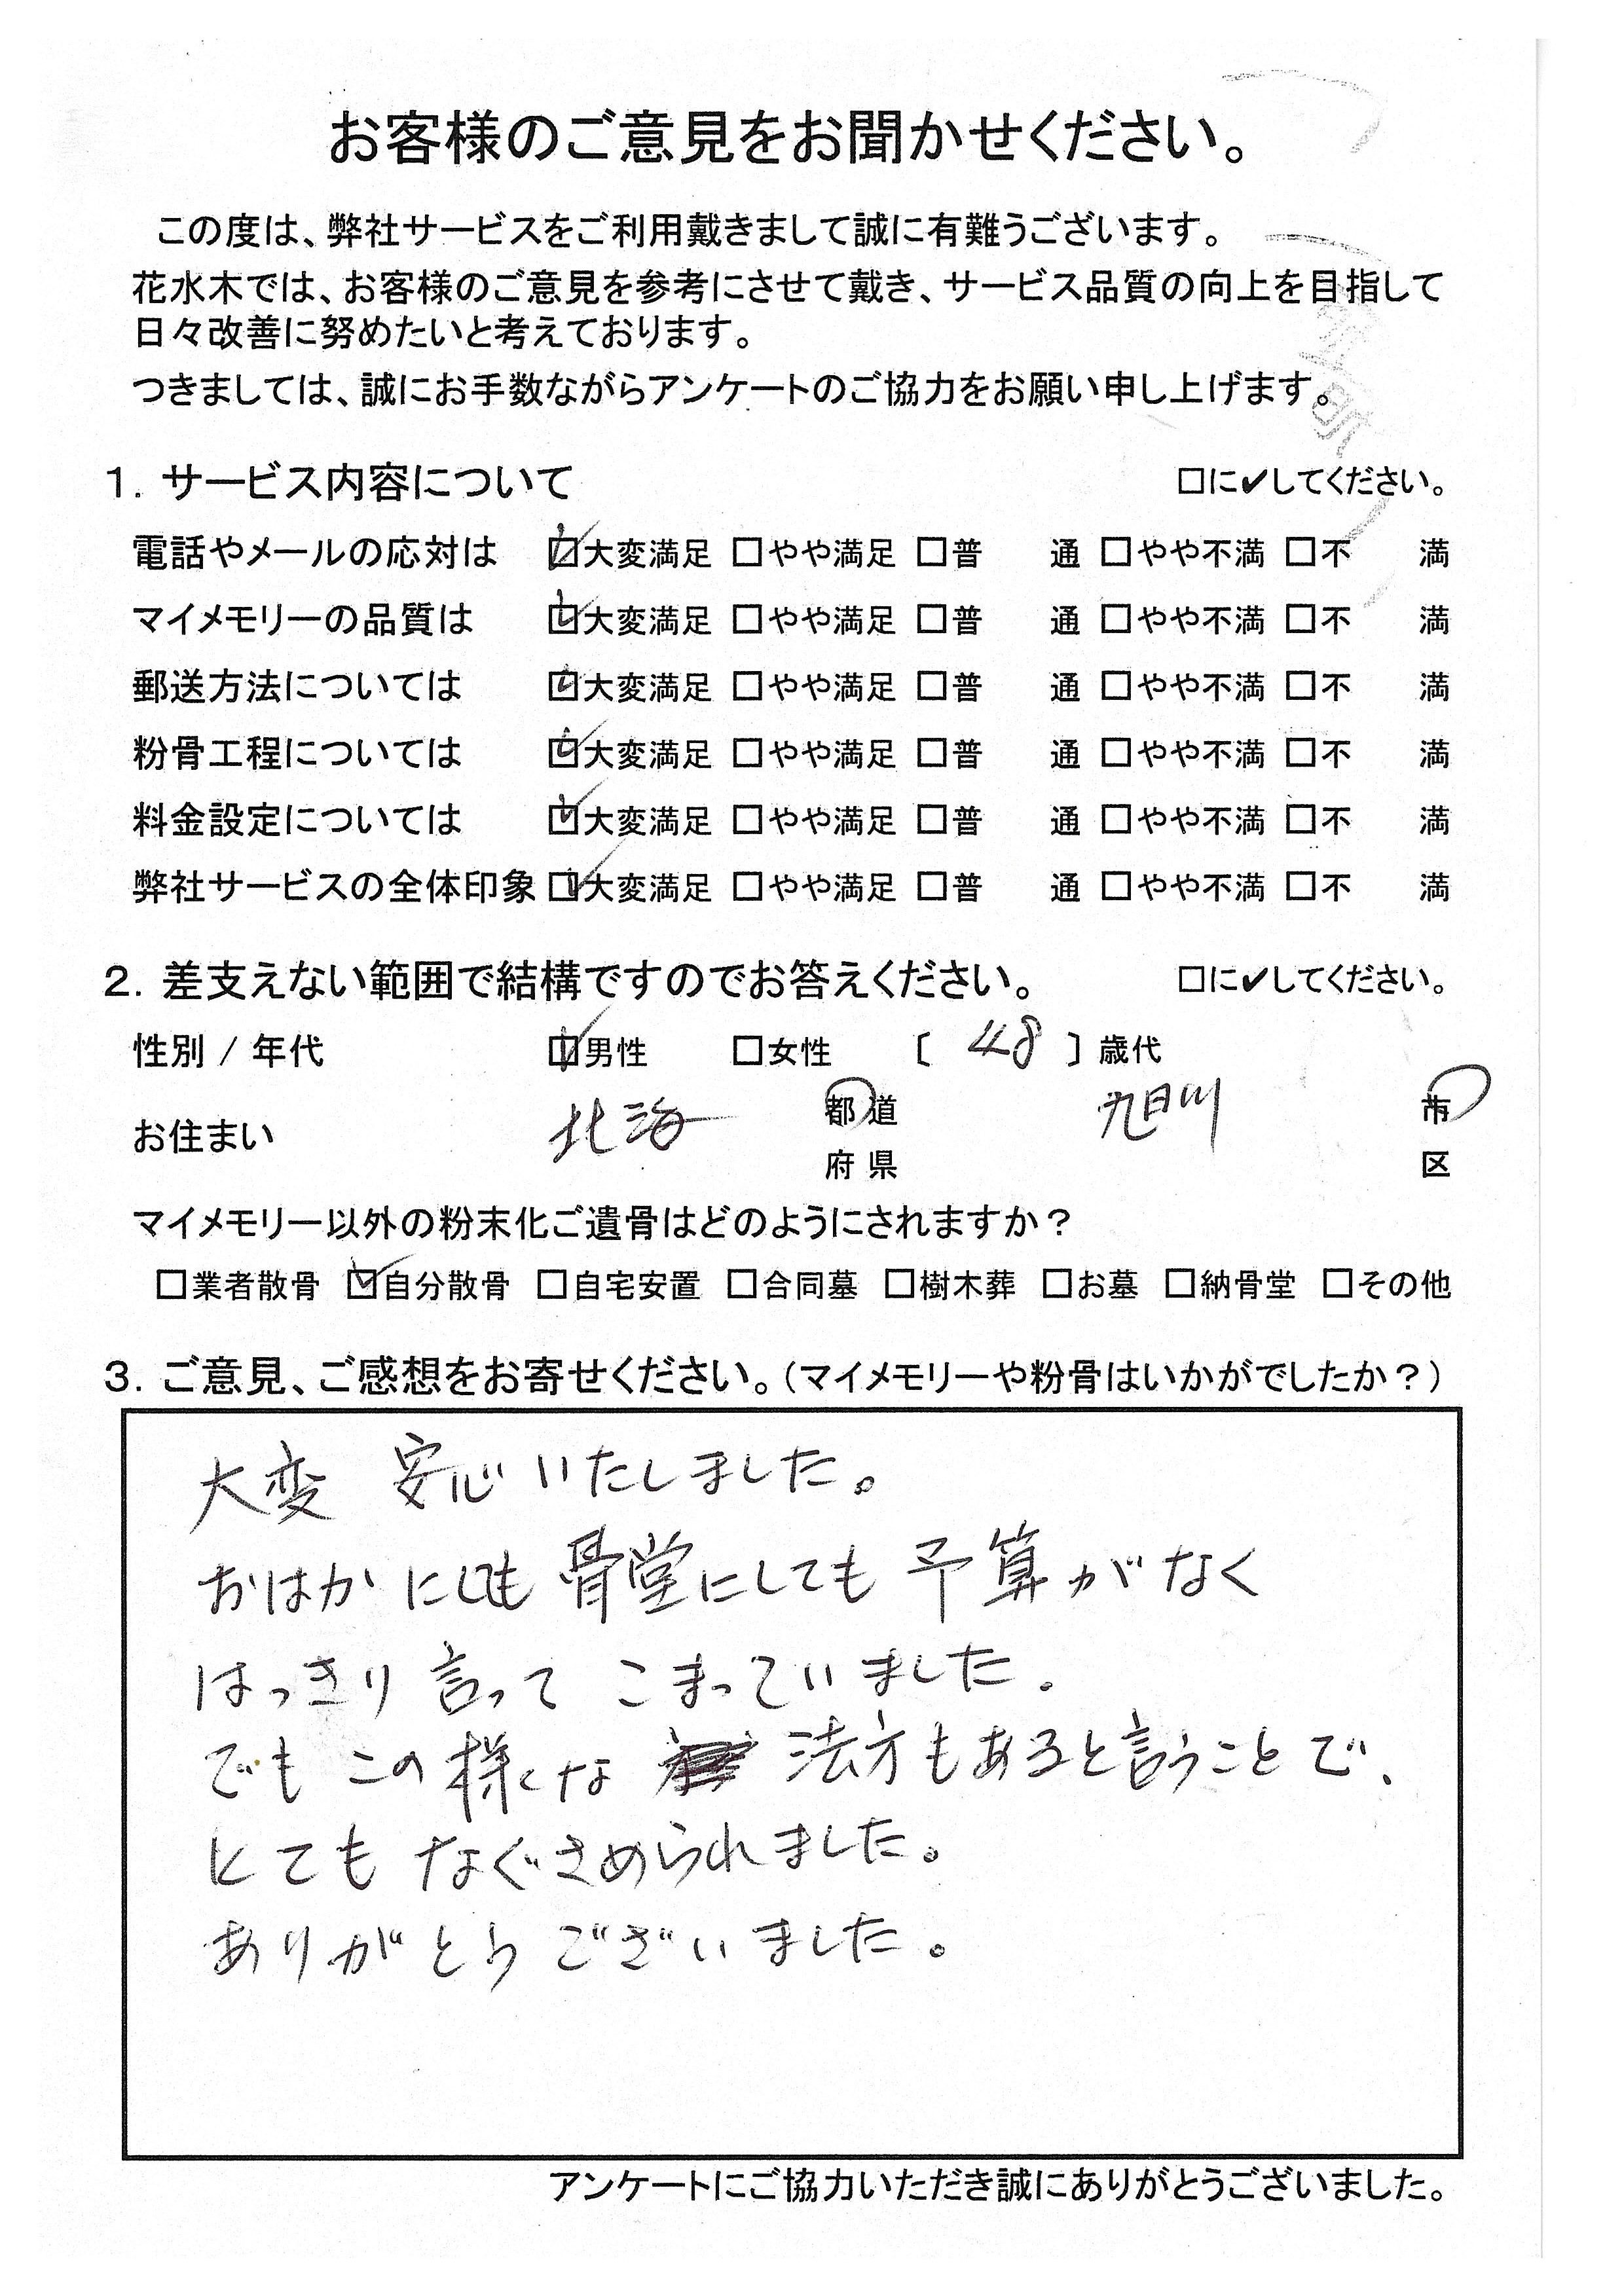 お客様のご意見をお聞かせください。
この度は、弊社サービスをご利用戴きまして誠に有難うございます。
花水木では、お客様のご意見を参考にさせて戴き、サービス品質の向上を目指して
日々改善に努めたいと考えております。
つきましては、誠にお手数ながらアンケートのご協力をお願い申し上げます。
1. サービス内容について □に✔してください。
電話やメールの応対は ☑大変満足 □やや満足 □普 通 □やや不満 □不 満
マイメモリーの品質は ☑大変満足 □やや満足 □普 通 □やや不満 □不 満
郵送方法については ☑大変満足 □やや満足 □普 通 □やや不満 □不 満
粉骨工程については ☑大変満足 □やや満足 □普 通 □やや不満 □不 満
料金設定については ☑大変満足 □やや満足 □普 通 □やや不満 □不 満
弊社サービスの全体印象 ☑大変満足 □やや満足 □普 通 □やや不満 □不 満
2. 差支えない範囲で結構ですのでお答えください。 □に✔してください。
性別 / 年代 ☑男性 □女性 〔 48 〕歳代
お住まい 北海 都 道 旭川 市
府 県 区
マイメモリー以外の粉末化ご遺骨はどのようにされますか？
□業者散骨 ☑自分散骨 □自宅安置 □合同墓 □樹木葬 □お墓 □納骨堂 □その他
3. ご意見、ご感想をお寄せください。（マイメモリーや粉骨はいかがでしたか？）
大変 安心いたしました。
おはかにしても 骨堂にしても 予算がなく
はっきり言って こまっていました.
でも この様な 法方もあると言うことで、
とても なぐさめられました。
ありがとう ございました。
アンケートにご協力いただき誠にありがとうございました。